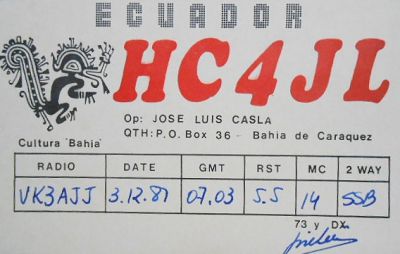 ECUADOR
HC4JL
Op: JOSE LUIS CASLA
QTH: P.O. Box 36 - Bahia de Caraquez
Cultura "Bahia"
RADIO DATE GMT RST MC 2 WAY
VK3AJJ 3.12.87 07.03 5.5 14 SSB
73 y DX